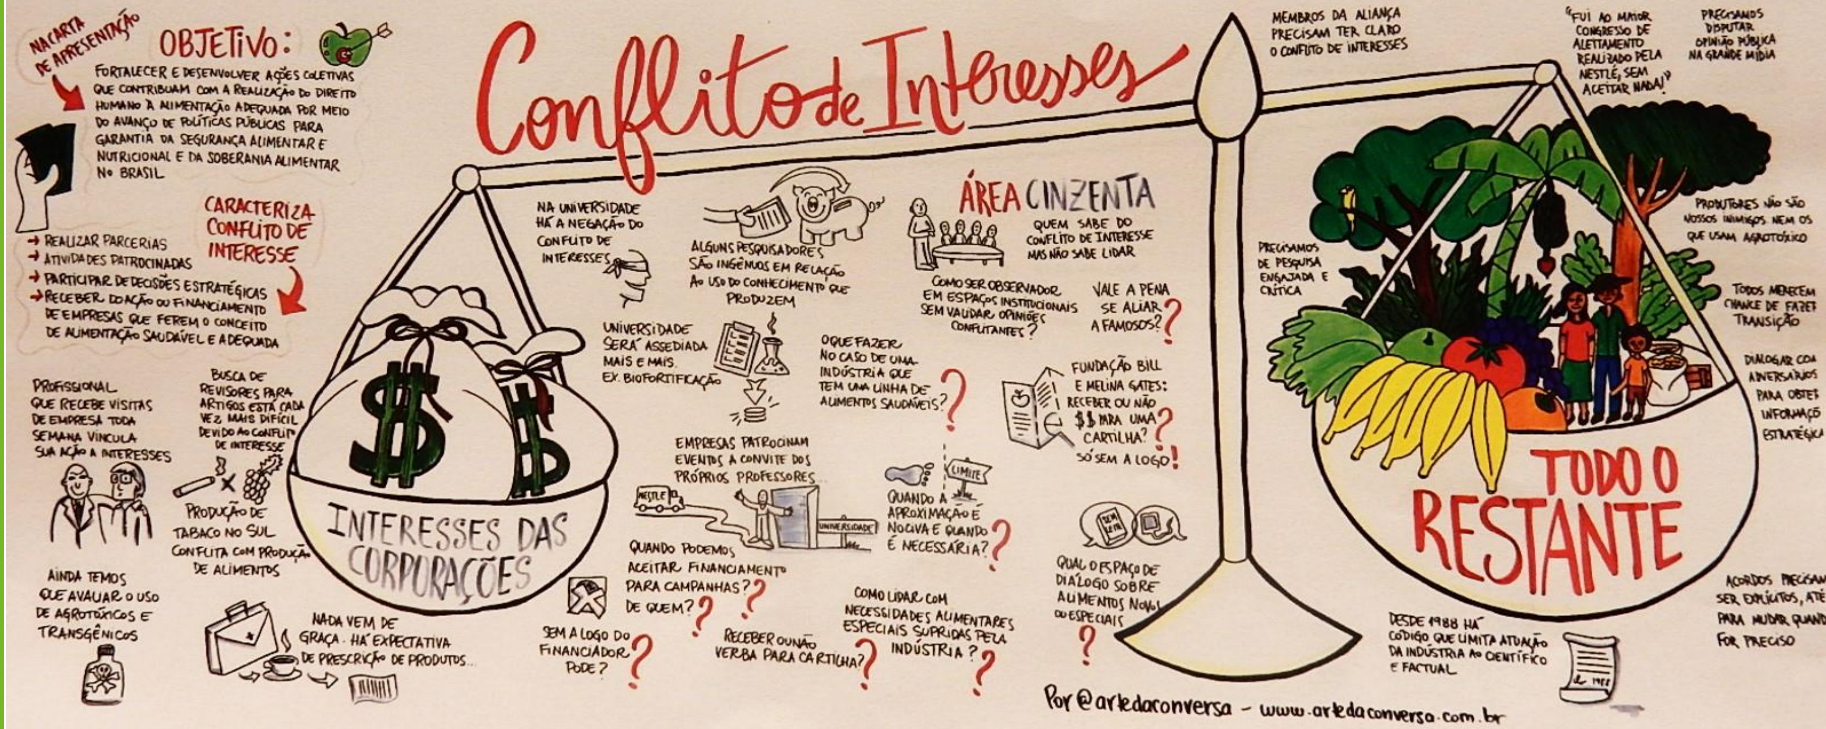 NA CARTA
DE APRESENTAÇÃO
OBJETIVO:
FORTALECER E DESENVOLVER AÇÕES COLETIVAS
QUE CONTRIBUAM COM A REALIZAÇÃO DO DIREITO
HUMANO À ALIMENTAÇÃO ADEQUADA POR MEIO
DO AVANÇO DE POLÍTICAS PÚBLICAS PARA
GARANTIA DA SEGURANÇA ALIMENTAR E
NUTRICIONAL E DA SOBERANIA ALIMENTAR
NO BRASIL
CARACTERIZA
CONFLITO DE
INTERESSE
→ REALIZAR PARCERIAS
→ ATIVIDADES PATROCINADAS
→ PARTICIPAR DE DECISÕES ESTRATÉGICAS
→ RECEBER DOAÇÃO OU FINANCIAMENTO
DE EMPRESAS QUE FEREM O CONCEITO
DE ALIMENTAÇÃO SAUDÁVEL E ADEQUADA
PROFISSIONAL
QUE RECEBE VISITAS
DE EMPRESA TODA
SEMANA VINCULA
SUA AÇÃO A INTERESSES
BUSCA DE
REVISORES PARA
ARTIGOS ESTÁ CADA
VEZ MAIS DIFÍCIL
DEVIDO AO CONFLITO
DE INTERESSE
PRODUÇÃO DE
TABACO NO SUL
CONFLITA COM PRODUÇÃO
DE ALIMENTOS
AINDA TEMOS
QUE AVALIAR O USO
DE AGROTÓXICOS E
TRANSGÊNICOS
NADA VEM DE
GRAÇA. HÁ EXPECTATIVA
DE PRESCRIÇÃO DE PRODUTOS...
Conflito de Interesses
$
$
INTERESSES DAS
CORPORAÇÕES
NA UNIVERSIDADE
HÁ A NEGAÇÃO DO
CONFLITO DE
INTERESSES
ALGUNS PESQUISADORES
SÃO INGÊNUOS EM RELAÇÃO
AO USO DO CONHECIMENTO QUE
PRODUZEM
UNIVERSIDADE
SERÁ ASSEDIADA
MAIS E MAIS.
EX. BIOFORTIFICAÇÃO
EMPRESAS PATROCINAM
EVENTOS A CONVITE DOS
PRÓPRIOS PROFESSORES...
NESTLÉ
UNIVERSIDADE
QUANDO PODEMOS
ACEITAR FINANCIAMENTO
PARA CAMPANHAS?
DE QUEM?
SEM A LOGO DO
FINANCIADOR
PODE?
RECEBER OU NÃO
VERBA PARA CARTILHA?
ÁREA CINZENTA
QUEM SABE DO
CONFLITO DE INTERESSE
MAS NÃO SABE LIDAR
COMO SER OBSERVADOR
EM ESPAÇOS INSTITUCIONAIS
SEM VALIDAR OPINIÕES
CONFLITANTES?
VALE A PENA
SE ALIAR
A FAMOSOS?
O QUE FAZER
NO CASO DE UMA
INDÚSTRIA QUE
TEM UMA LINHA DE
ALIMENTOS SAUDÁVEIS?
FUNDAÇÃO BILL
E MELINA GATES:
RECEBER OU NÃO
$$ PARA UMA
CARTILHA?
SÓ SEM A LOGO!
LIMITE
QUANDO A
APROXIMAÇÃO É
NOCIVA E QUANDO
É NECESSÁRIA?
COMO LIDAR COM
NECESSIDADES ALIMENTARES
ESPECIAIS SUPRIDAS PELA
INDÚSTRIA?
QUAL O ESPAÇO DE
DIÁLOGO SOBRE
ALIMENTOS NOVOS
OU ESPECIAIS
?
MEMBROS DA ALIANÇA
PRECISAM TER CLARO
O CONFLITO DE INTERESSES
"FUI AO MAIOR
CONGRESSO DE
ALEITAMENTO
REALIZADO PELA
NESTLÉ, SEM
ACEITAR NADA!"
PRECISAMOS
DISPUTAR
OPINIÃO PÚBLICA
NA GRANDE MÍDIA
PRECISAMOS
DE PESQUISA
ENGAJADA E
CRÍTICA
PRODUTORES NÃO SÃO
NOSSOS INIMIGOS NEM OS
QUE USAM AGROTÓXICO
TODOS MERECEM
CHANCE DE FAZER
TRANSIÇÃO
DIALOGAR COM
ADVERSÁRIOS
PARA OBTER
INFORMAÇÕ
ESTRATÉGICA
TODO O
RESTANTE
ACORDOS PRECISAM
SER EXPLÍCITOS, ATÉ
PARA MUDAR QUAND
FOR PRECISO
DESDE 1988 HÁ
CÓDIGO QUE LIMITA ATUAÇÃO
DA INDÚSTRIA AO CIENTÍFICO
E FACTUAL
1988
Por @artedaconversa - www.artedaconversa.com.br